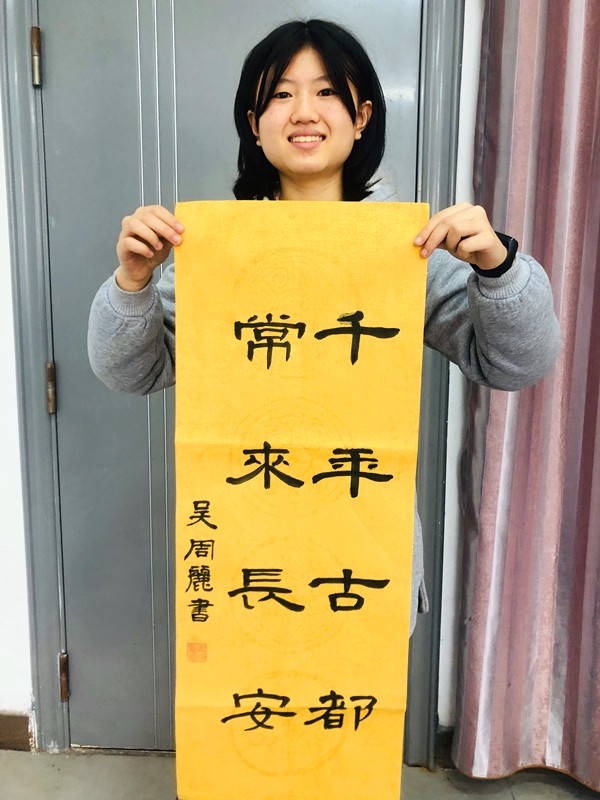 千年古都
常來長安
吳周麗書